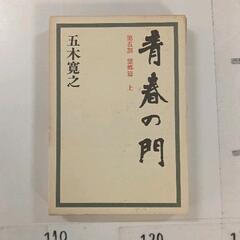 青春の門
第五部 望郷篇 上
五木寛之
110
120